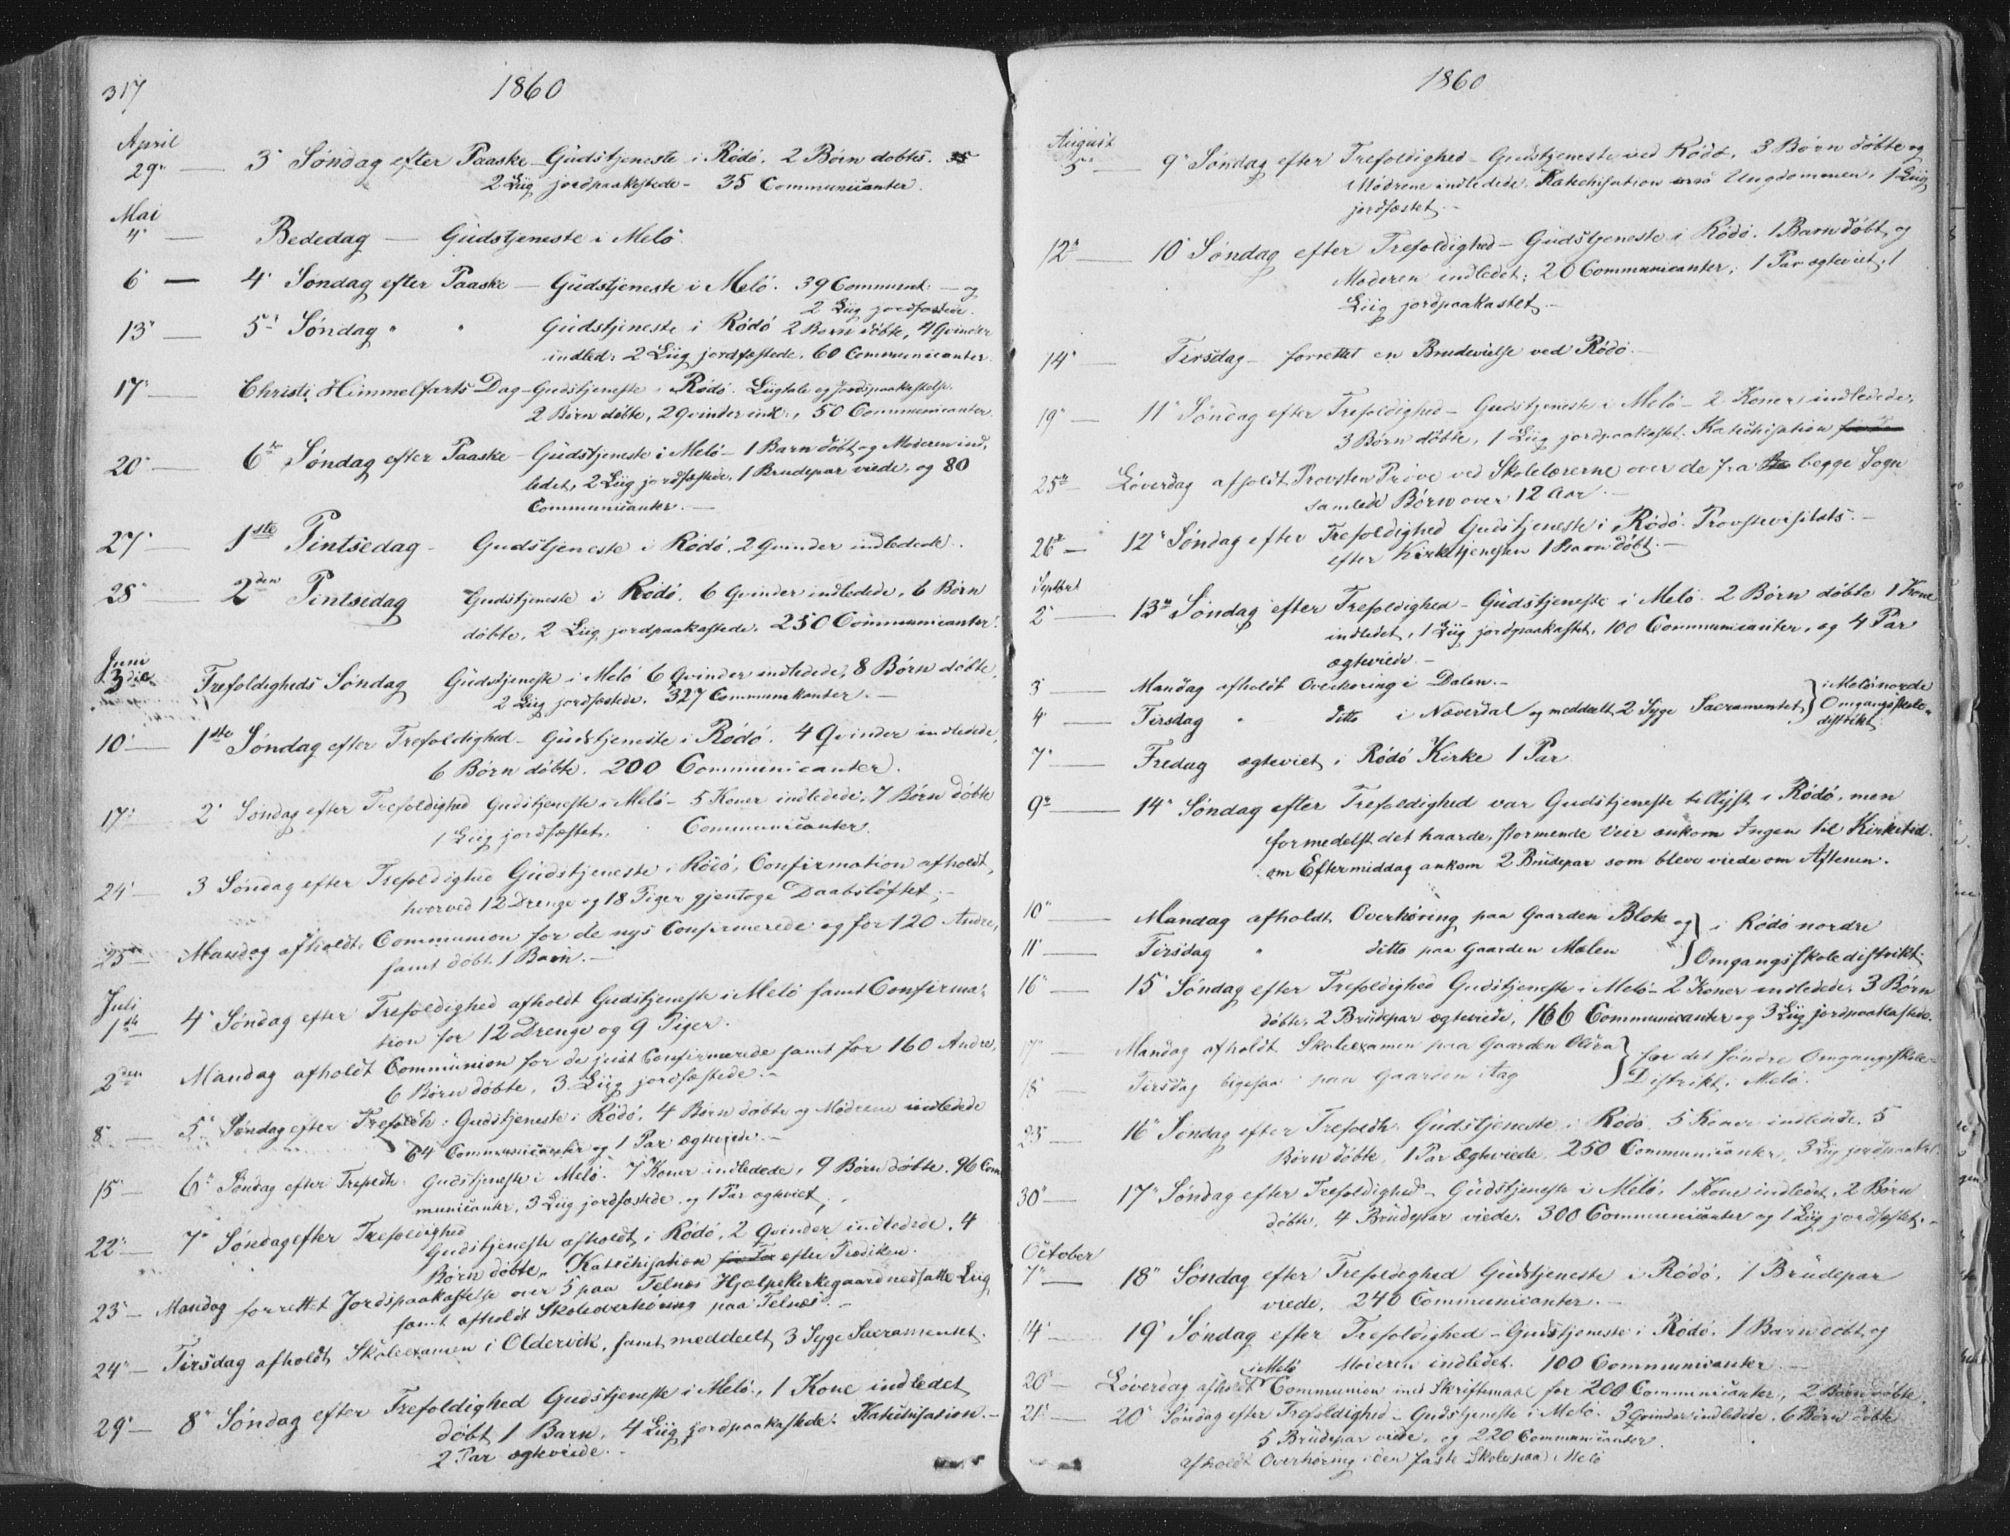 317
1860
April
29. — 3' Søndag efter Paaske - Gudstjeneste i Rødø. 2 Børn døbtes.
2 Liig jordpaakastede - 35 Communicanter.
Mai
4' — Bededag — Gudstjeneste i Melø.
6' — 4' Søndag efter Paaske — Gudstjeneste i Melø. 39 Communt: — og
2 Liig jordfæstede.
13' — 5' Søndag " " Gudstjeneste i Rødø 2 Børn døbte, 4 Qvinder
indled: 2 Liig jordfæstede, 60 Communicanter.
17' — Christi Himmelfarts Dag - Gudstjeneste i Rødø. Liigtale og Jordpaakastelse.
2 Børn døbte, 2 Qvinder indl:, 50 Communicanter.
20' — 6te Søndag efter Paaske - Gudstjeneste i Melø - 1 Barn døbt og Moderen ind-
ledet, 2 Liig jordfæstede, 1 Brudepar viede, og 80
Communicanter. —
27' — 1ste Pintsedag - Gudstjeneste i Rødø. 2 Qvinder indledede.
28' — 2den Pintsedag Gudstjeneste i Rødø. 6 Qvinder indledede, 6 Børn
døbte, 2 Liig jordpaakastede. 250 Communicanter.
Juni
3die Trefoldigheds Søndag Gudstjeneste i Melø 6 Qvinder indledede, 8 Børn døbte,
2 Liig jordfæstede. 327 Communicanter. —
10' — 1ste Søndag efter Trefoldighed - Gudstjeneste i Rødø. 4 Qvinder indledede,
6 Børn døbte. 200 Communicanter.
17' — 2' Søndag efter Trefoldighed Gudstjeneste i Melø - 5 Koner indledede, 7 Børn døbte
1 Liig jordfæstet. Communicanter.
24' — 3 Søndag efter Trefoldighed Gudstjeneste i Rødø, Confirmation afholdt,
hvorved 12 Drenge og 18 Piger gjentoge Daabsløftet. -
25' — Mandag afholdt Communion for de nys Confirmerede og for 120 Andre,
samt døbt 1 Barn. —
Juli
1ste — 4' Søndag efter Trefoldighed afholdt Gudstjeneste i Melø samt Confirma-
tion for 12 Drenge og 9 Piger.
2den Mandag afholdt Communion for de just Confirmerede samt for 160 Andre,
6 Børn døbte, 3 Liig jordfæstede. -
8' — 5' Søndag efter Trefoldh: Gudstjeneste i Rødø. 4 Børn døbte og Mødrene indledede
64 Communicanter og 1 Par ægteviede. —
15' — 6' Søndag efter Trefdh: Gudstjeneste i Melø. 7 Koner indledede, 9 Børn døbte. 96 Com
municanter, 3 Liig jordfæstede og 1 Par ægteviet. -
22' — 7' Søndag efter Trefoldighed
Gudstjeneste afholdt i Rødø, 2 Qvinder indledede. 4
Børn døbte. Katechisation efter Prædiken.
23' — Mandag forrettet Jordpaakastelse over 5 paa Telnes Hjælpekirkegaard nedsatte Liig
samt afholdt Skoleoverhøring paa Telnes. -
24' — Tirsdag afholdt Skoleexamen i Oldervik, samt meddeelt 3 Syge Sacramentet.
29' — 8' Søndag efter Trefoldighed Gudstjeneste i Melø, 1 Kone indledet
døbt 1 Barn, 4 Liig jordpaakastede. Katechisation. —
2 Par ægteviede. -
1860
August
5' — 9' Søndag efter Trefoldighed - Gudstjeneste ved Rødø. 3 Børn døbte og
Mødrene indledede. Katechisation Ungdommen. 1 Liig
jordfæstet. -
12' — 10' Søndag efter Trefoldighed - Gudstjeneste i Rødø. 1 Barn døbt og
Moderen indledet; 20 Communicanter; 1 Par ægteviet, 1
Liig jordpaakastet. -
14' — Tirsdag - forrettet en Brudevielse ved Rødø. —
19' — 11' Søndag efter Trefoldighed - Gudstjeneste i Melø - 2 Koner indledede,
3 Børn døbte, 1 Liig jordpaakastet. Katechisation
25de — Løverdag afholdt Provsten Prøve ved Skolelærerne over de fra begge Sogn
samlede Børn over 12 Aar. -
26de — 12' Søndag efter Trefoldighed Gudstjeneste i Rødø. Provstevisitats. -
efter Kirketjenesten 1 Barn døbt. —
Septbr
2' — 13' Søndag efter Trefoldighed - Gudstjeneste i Melø. 2 Børn døbte 1 Kone
indledet, 1 Liig jordpaakastet, 100 Communicanter, og 4 Par
ægteviede. —
3' — Mandag afholdt Overhøring i Dalen. —
4' — Tirsdag " ditto i Næverdal og meddeelt 2 Syge Sacramentet } i Melø nordre
Omgangsskole-
distrikt
7' — Fredag ægteviet i Rødø Kirke 1 Par.
9' — 14' Søndag efter Trefoldighed var Gudstjeneste tillyst i Rødø, men
formedelst det haarde, stormende Veir ankom Ingen til Kirketid.
om Eftermiddag ankom 2 Brudepar som bleve viede om Aftenen.
10' — Mandag afholdt Overhøring paa Gaarden Blok og } i Rødø nordre
11' — Tirsdag " ditto paa Gaarden Malen } Omgangsskoledistrikt.
16' — 15' Søndag efter Trefoldighed Gudstjeneste i Melø - 2 Koner indledede. 3 Børn
døbte, 2 Brudepar ægteviede, 166 Communicanter og 3 Liig jordpaakastede.
17' — Mandag afholdt Skoleexamen paa Gaarden } for det Søndre Omgangsskole-
18' — Tirsdag ligesaa paa Gaarden Aag } Distrikt i Melø.
23' — 16' Søndag efter Trefoldh: Gudstjeneste i Rødø. 5 Koner indledede. 5
Børn døbte, 1 Par ægteviede, 250 Communicanter, 3 Liig jordpaakst.
30' — 17' Søndag efter Trefoldighed - Gudstjeneste i Melø. 1 Kone indledet, 2 Børn
døbte, 4 Brudepar viede. 300 Communicanter og 1 Liig jordfæstet. -
October
7' — 18' Søndag efter Trefoldighed Gudstjeneste i Rødø, 1 Brudepar
viede. 240 Communicanter. —
14' — 19' Søndag efter Trefoldighed - Gudstjeneste i Rødø. 1 Barn døbt og
Moderen indledet. 100 Communicanter. —
20' — Løverdag afholdt i Melø Communion med Skriftemaal for 200 Communicanter, 2 Børn døbte.
21' — 20' Søndag efter Trefoldighed - Gudstjeneste i Melø. 3 Qvinder indledede. 6 Børn døbte
5 Brudepar viede, og 220 Communicanter.
afholdt Overhøring i den faste Skole paa Melø